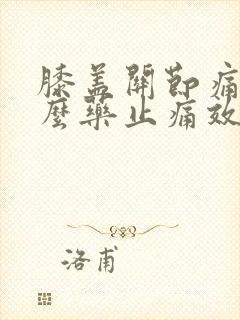 膝盖關節痛
麼藥止痛效
洛甫